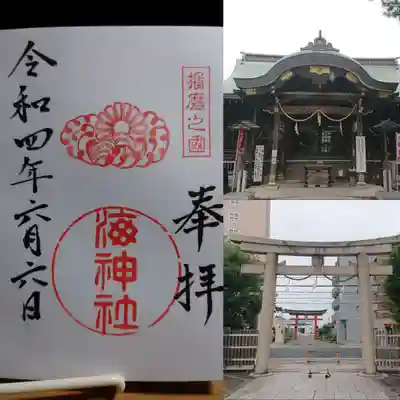 播磨之國
奉拝
海神社
令和四年六月六日